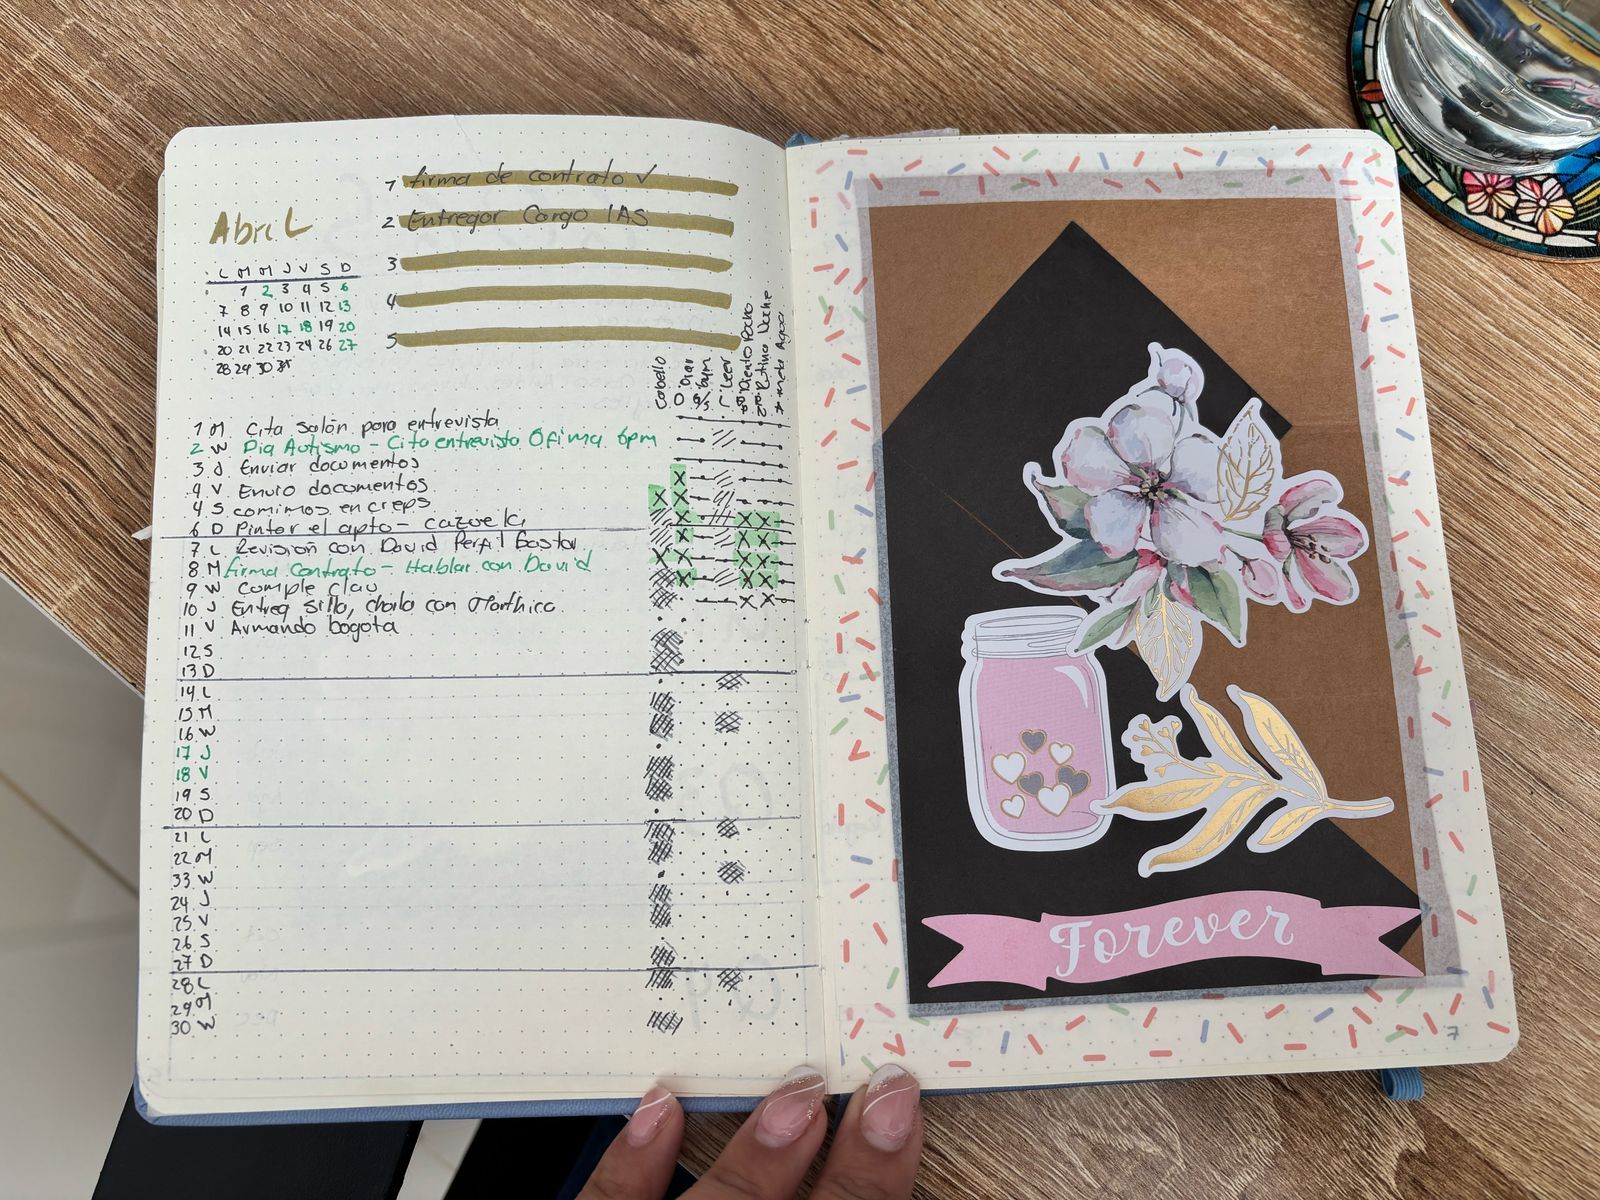 Abril
1 firma de contrato ✓
2 Entregar Cargo IAS
3
4
5
L M M J V S D
1 2 3 4 5 6
7 8 9 10 11 12 13
14 15 16 17 18 19 20
20 21 22 23 24 26 27
28 29 30 31
Cabello
Orar
Gym
Leer
Rutina Noche
meta Agua
1 M Cita salón para entrevista
2 W Dia Autismo - Cita entrevista Ofima 6pm
3 J Enviar documentos
4 V Envio documentos
4 S comimos en creps
6 D Pintar el apto - cazuela
7 L Revisión con David Perfil Gastar
8 M firma Contrato - Hablar con David
9 W Cumple clau
10 J Entreg silla, charla con Marthica
11 V Armando bogota
12 S
13 D
14 L
15 M
16 W
17 J
18 V
19 S
20 D
21 L
22 M
33 W
24 J
25 V
26 S
27 D
28 L
29 M
30 W
Forever
7